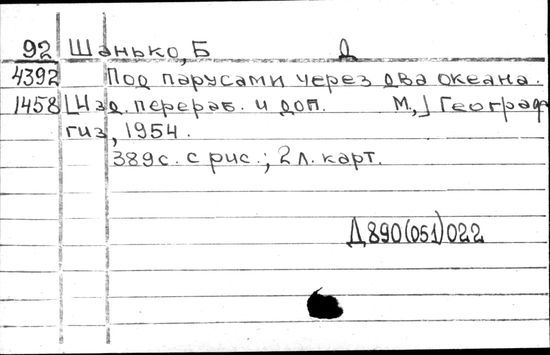 92 Шанько, Б Д
4392 Под парусами через два океана.
1458 [Изд. перераб. и доп. М.,] Географ
гиз, 1954.
389с. с рис.; 2 л. карт.
Д890(051)022